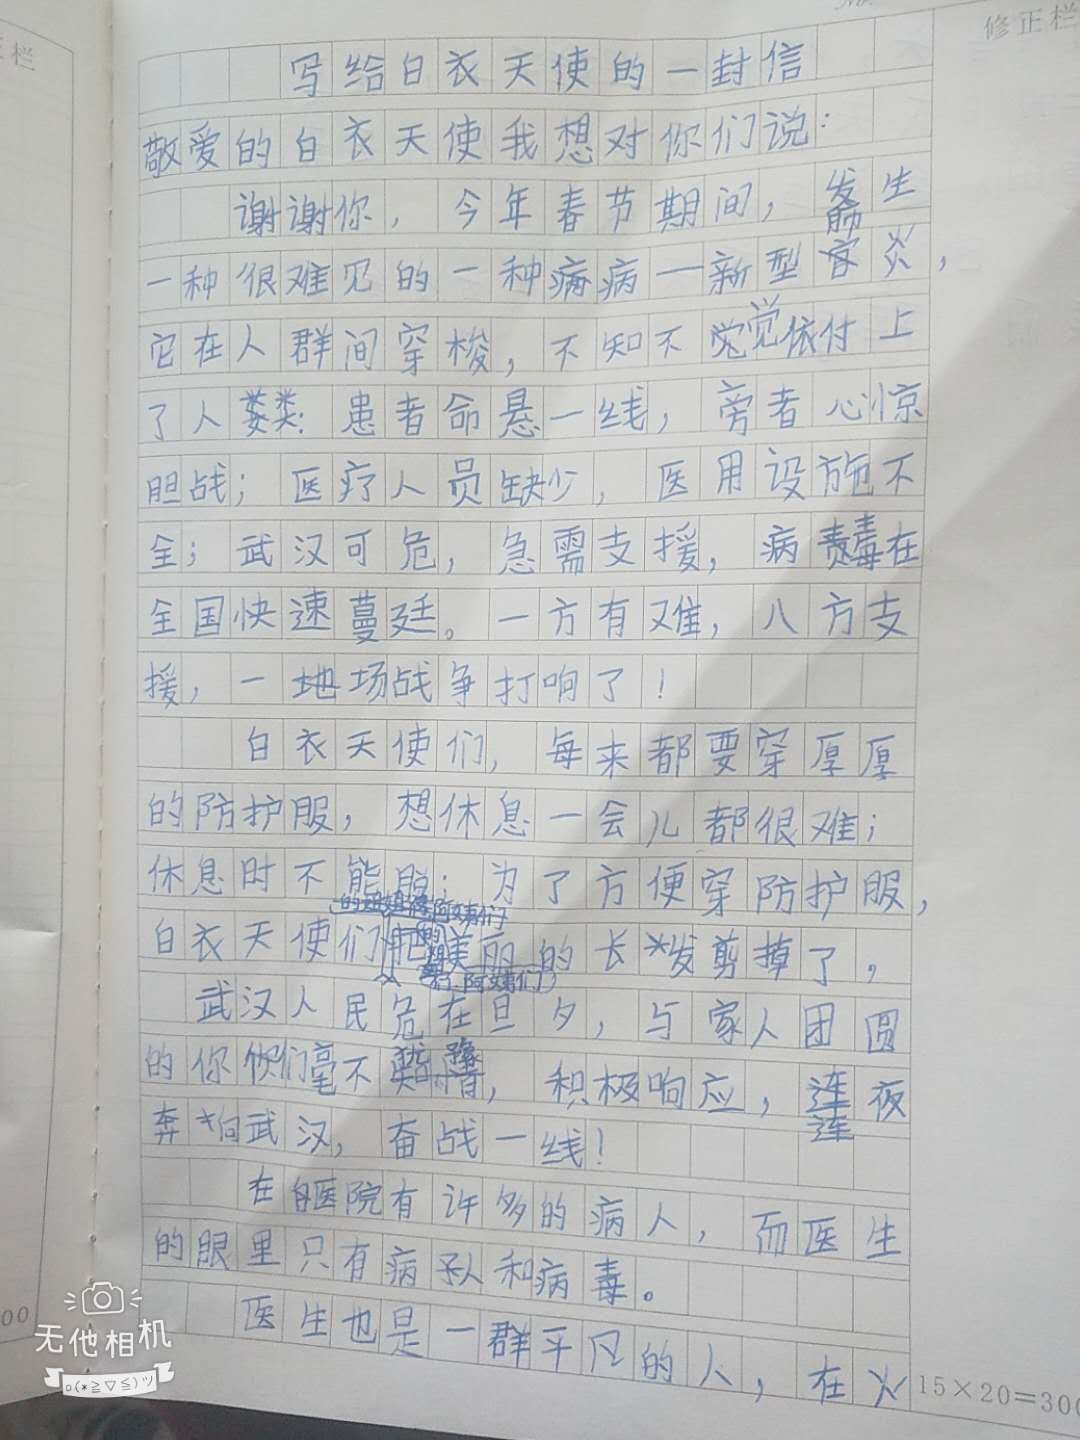 修正栏
栏
写给白衣天使的一封信
敬爱的白衣天使我想对你们说:
谢谢你,今年春节期间,发生
一种很难见的一种病病一新型肺炎,
它在人群间穿梭,不知不觉依付上
了人类:患者命悬一线,旁者心惊
胆战;医疗人员缺少,医用设施不
全;武汉可危,急需支援,病毒在
全国快速蔓廷。一方有难,八方支
援,一场战争打响了!
白衣天使们,每来都要穿厚厚
的防护服,想休息一会儿都很难;
休息时不能脱;为了方便穿防护服,
白衣天使们把美丽的长发剪掉了,
武汉人民危在旦夕,与家人团圆
的你们毫不,积极响应,连夜
奔向武汉,奋战一线!
在医院有许多的病人,而医生
的眼里只有病人和病毒。
医生也是一群平凡的人,在火
15×20=300
00
无他相机
o(*≧▽≦)ツ